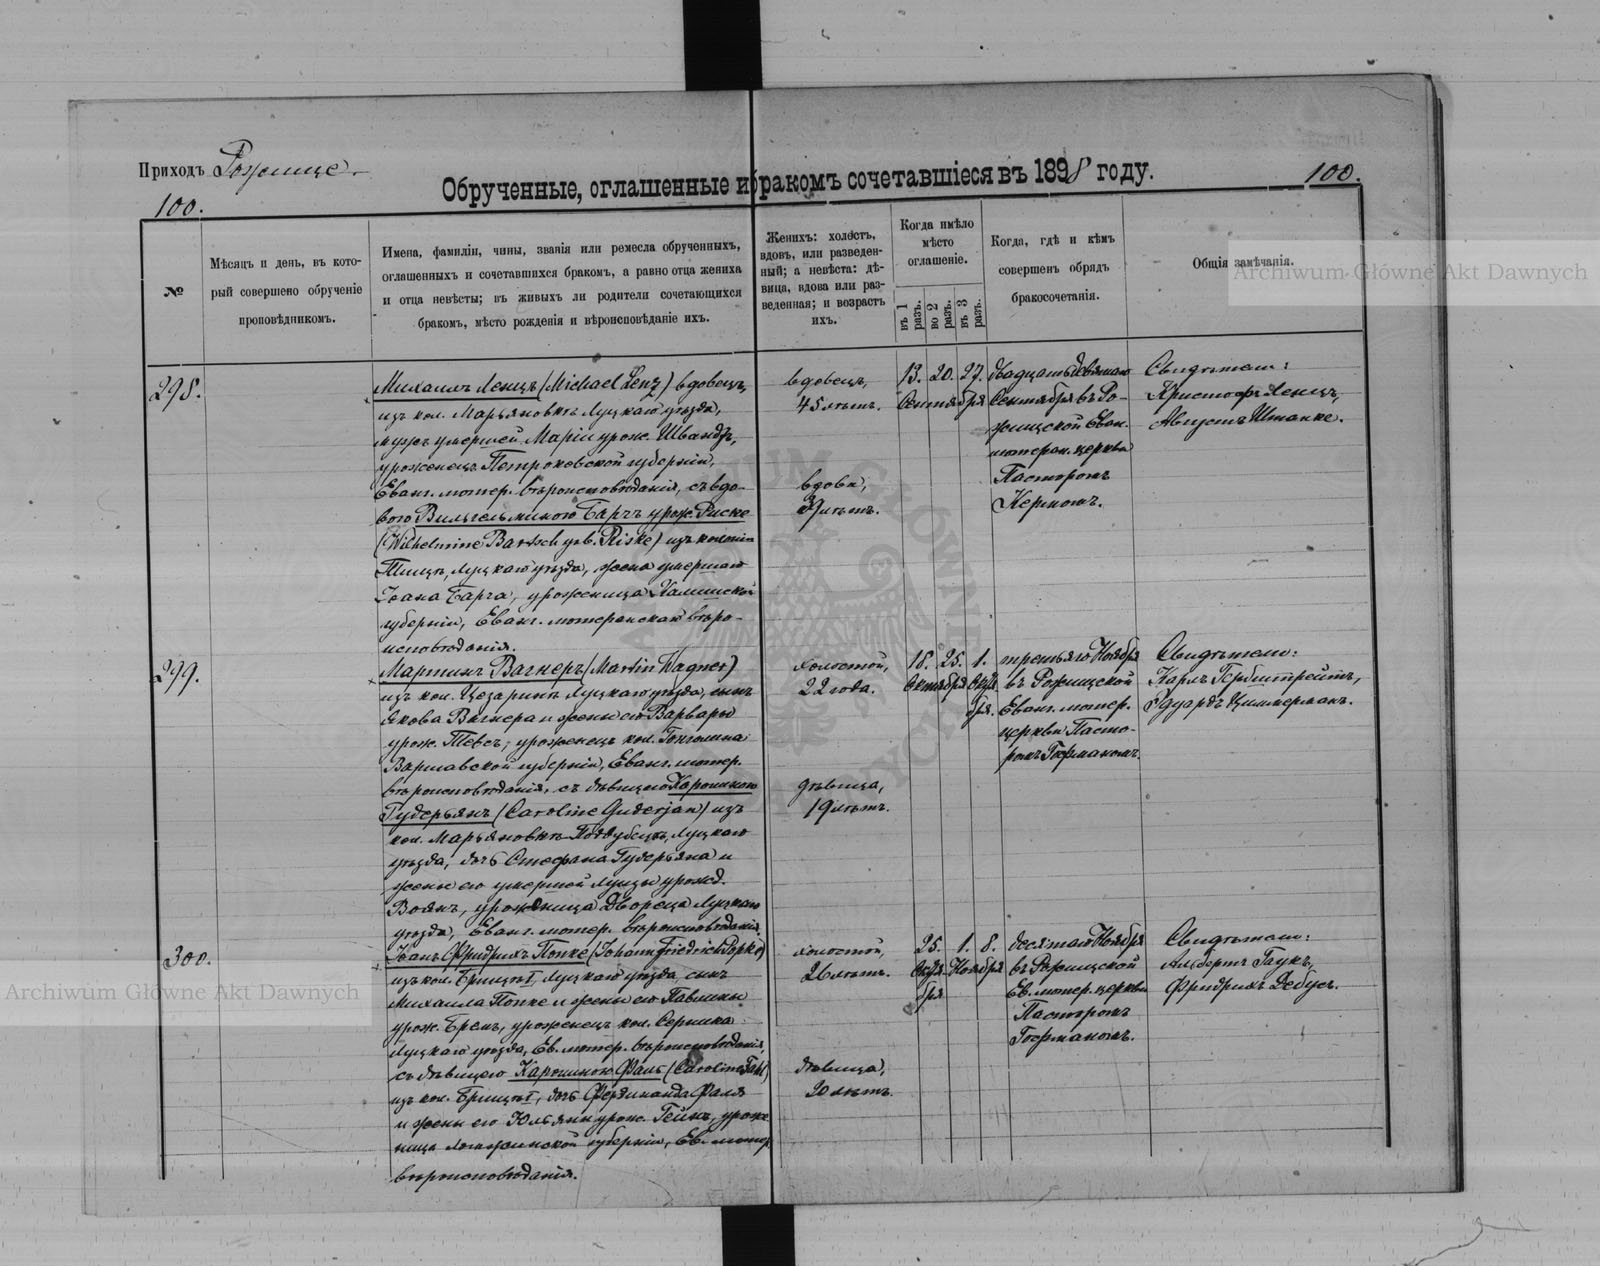 Приходъ Рожище.
Обрученные, оглашенные и бракомъ сочетавшіеся въ 1898 году.
100.
100.
№
Мѣсяцъ и день, въ кото-
рый совершено обрученіе
проповѣдникомъ.
Имена, фамиліи, чины, званія или ремесла обрученныхъ,
оглашенныхъ и сочетавшихся бракомъ, а равно отца жениха
и отца невѣсты; въ живыхъ ли родители сочетающихся
бракомъ, мѣсто рожденія и вѣроисповѣданіе ихъ.
Женихъ: холостъ,
вдовъ, или разведен-
ный; а невѣста: дѣ-
вица, вдова или раз-
веденная; и возрастъ
ихъ.
Когда имѣло
мѣсто
оглашеніе.
въ 1 разъ.
во 2 разъ.
въ 3 разъ.
Когда, гдѣ и кѣмъ
совершенъ обрядъ
бракосочетанія.
Общія замѣчанія.
298.
Михаилъ Ленцъ (Michael Lenz) вдовецъ,
изъ кол. Марьяновкѣ Луцкаго уѣзда,
мужъ умершей Маріи урож. Швандъ,
уроженецъ Петроковской губерніи,
Еванг. лютер. вѣроисповѣданія, съ вдо-
вою Вильгельминою Барчъ урож. Риске
(Wilhelmine Bartsch geb. Riske) изъ колоніи
Луцкаго уѣзда, жена умершаго
Іоана Барча, уроженица Калишской
губерніи, Еванг. лютеранскаго вѣро-
исповѣданія.
вдовецъ,
45 лѣтъ.
вдова,
39 лѣтъ.
13. 20. 27.
Сентября
двадцать девятаго
Сентября въ Ро-
жищской Еван.
лютеран. церкви
Пасторомъ
Керномъ.
Свидѣтели:
Кристофъ Ленцъ,
Августъ Штанке.
299.
Мартинъ Вагнеръ (Martin Wagner)
изъ кол. Цезаринъ Луцкаго уѣзда, сынъ
Якова Вагнера и жены его Варвары
урож. Тевсъ, уроженецъ кол.
Варшавской губерніи, Еванг. лютер.
вѣроисповѣданія, съ дѣвицею Каролиною
Гудерьянъ (Caroline Guderjan) изъ
кол. Марьяновкѣ Луцкаго
уѣзда, дочь Стефана Гудерьяна и
жены его умершей Луизы урожд.
уроженица Двореца Луцкаго
уѣзда, Еванг. лютер. вѣроисповѣданія.
холостой,
22 года.
дѣвица,
19 лѣтъ.
18. 25. 1.
Октября Октя-
бря.
третьяго Ноября
въ Рожищской
Еванг. лютер.
церкви Пасто-
ромъ Гофманомъ.
Свидѣтели:
Карлъ Гербштрейтъ,
Эдуардъ Циммерманъ.
300.
Іоанъ Фридрихъ Попке (Johann Friedrich Popke)
изъ кол. Брищъ I, Луцкаго уѣзда, сынъ
Михаила Попке и жены его Павлины
урож. Бремъ, уроженецъ кол.
Луцкаго уѣзда, Ев. лютер. вѣроисповѣданія,
съ дѣвицею Каролиною Фаль (Caroline Fahl)
изъ кол. Брищъ I, дочь Фердинанда Фаля
и жены его Юльяны урож. Гейнъ, уроже-
ница Ломжинской губерніи, Ев. лютер.
вѣроисповѣданія.
холостой,
26 лѣтъ.
дѣвица,
20 лѣтъ.
25. 1. 8.
Октя- Ноября
бря
десятаго Ноября
въ Рожищской
Ев. лютер. церкви
Пасторомъ
Гофманомъ.
Свидѣтели:
Альбертъ Гаукъ,
Фридрихъ Дебусъ.
Archiwum Główne Akt Dawnych
Archiwum Główne Akt Dawnych